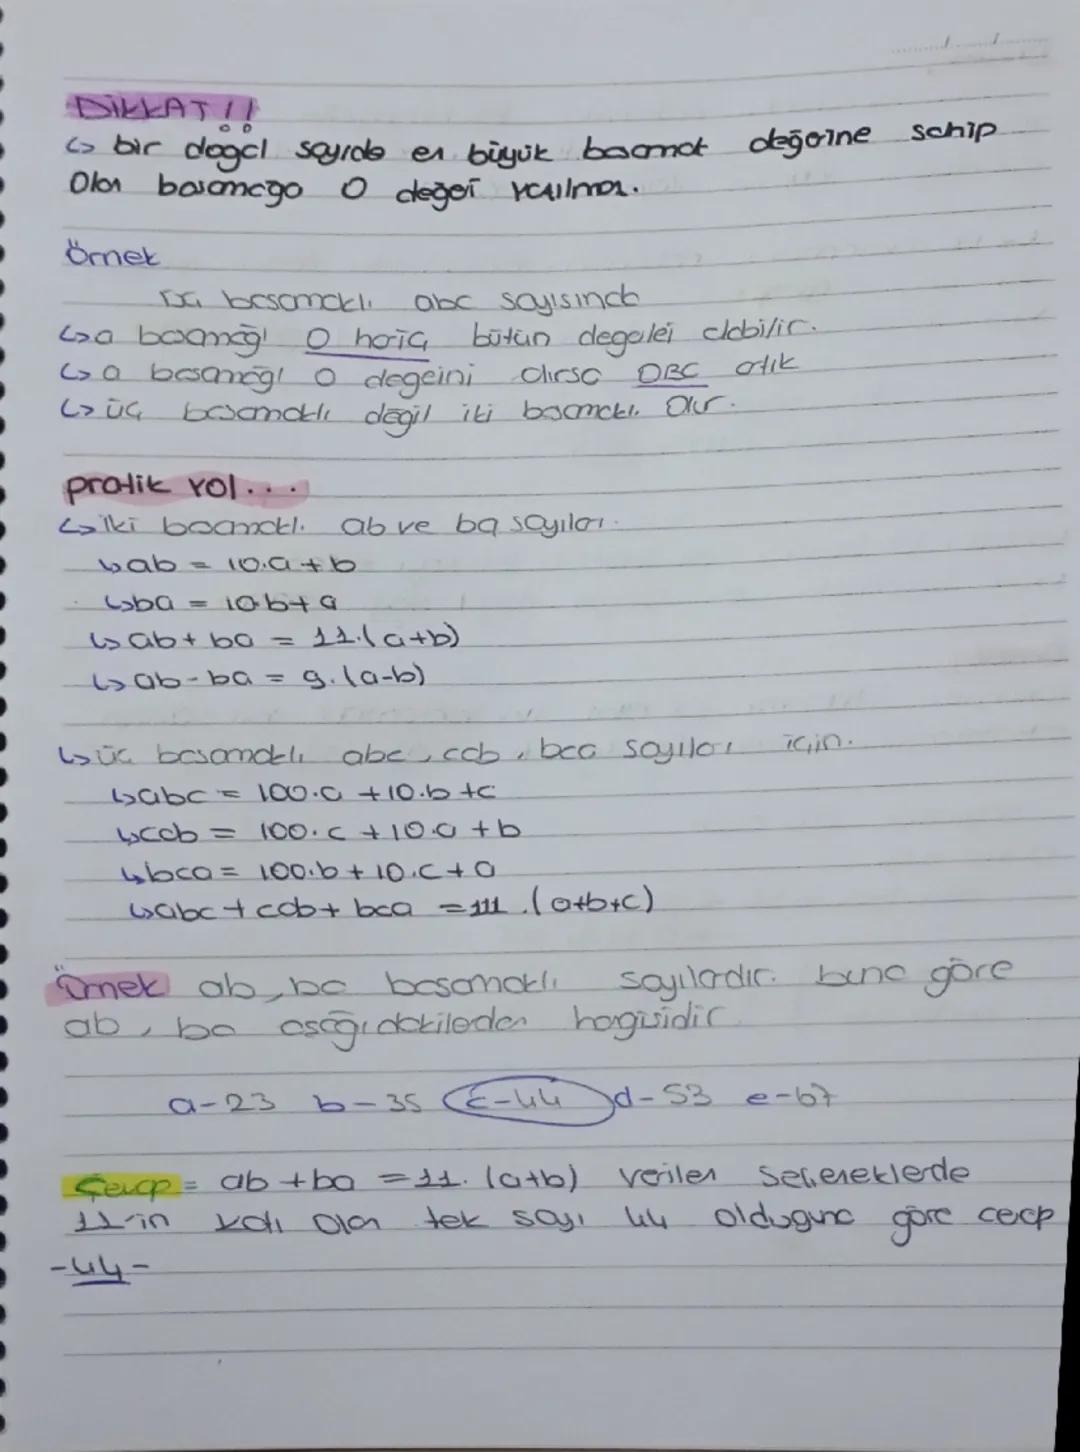 DİKKAT!!
↳ bir doğal sayıda en büyük basamak değerine sahip
Olan basamağa 0 değeri yazılmaz.
Örnek
üç basamaklı abc sayısında
↳ a basamağı 0 hariç bütün değerleri alabilir.
↳ a basamağı 0 değeini alırsa OBC artık
↳ üç basamaklı değil iki basamaklı olur.
pratik yol...
↳ iki basamaklı ab ve ba sayıları.
↳ ab = 10.a + b
↳ ba = 10.b + a
↳ ab + ba = 11.(a+b)
↳ ab - ba = 9.(a-b)
↳ üç basamaklı abc, cab, bca sayıları için.
↳ abc = 100.a + 10.b + c
↳ cab = 100.c + 10.a + b
↳ bca = 100.b + 10.c + a
↳ abc + cab + bca = 111.(a+b+c)
Örnek ab, ba basamaklı sayılardır. buna göre
ab, ba aşağıdakilerden hangisidir
a-23 b-35 c-44 d-53 e-67
Cevap = ab + ba = 11.(a+b) verilen seçeneklerde
11-in katı olan tek sayı 44 olduguna göre cevap
-44-